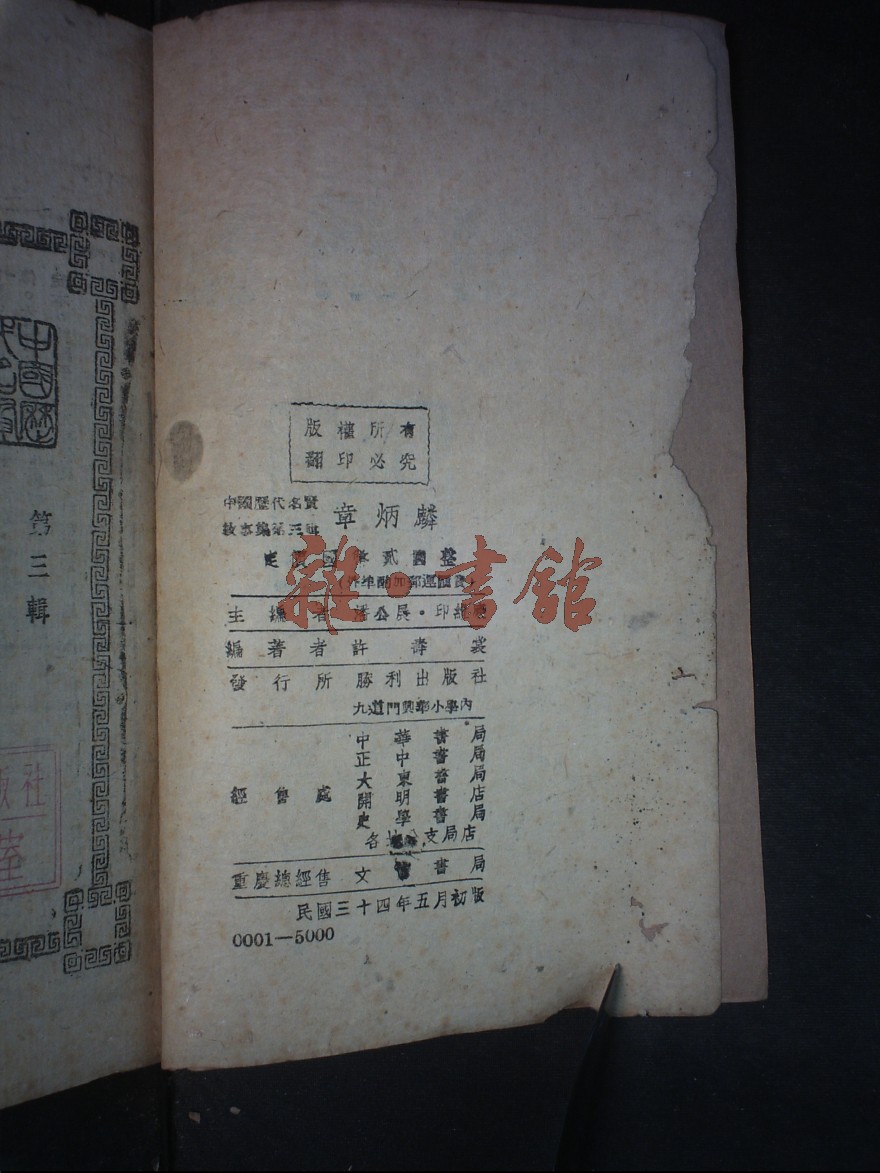 中國歷
第三輯
版社
版權所有
翻印必究
中國歷代名賢
故事集第三輯
章炳麟
定價國幣貳圓整
(外埠酌加郵運匯費)
主編者 潘公展·印維廉
編著者 許壽裳
發行所 勝利出版社
九道門興華小學內
經售處
中華書局
正中書局
大東書局
開明書店
史學書局
各地支局店
重慶總經售 文信書局
民國三十四年五月初版
0001—5000
雜·書館